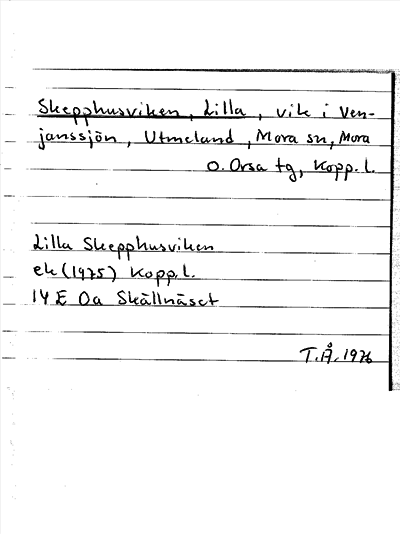 Skepphusviken, Lilla, vik i Ven-
janssjön, Utmeland, Mora sn, Mora
o. Orsa tg, Kopp. l.
Lilla Skepphusviken
ek (1975) Kopp. l.
14 E 0a Skällnäset
T.Å. 1976